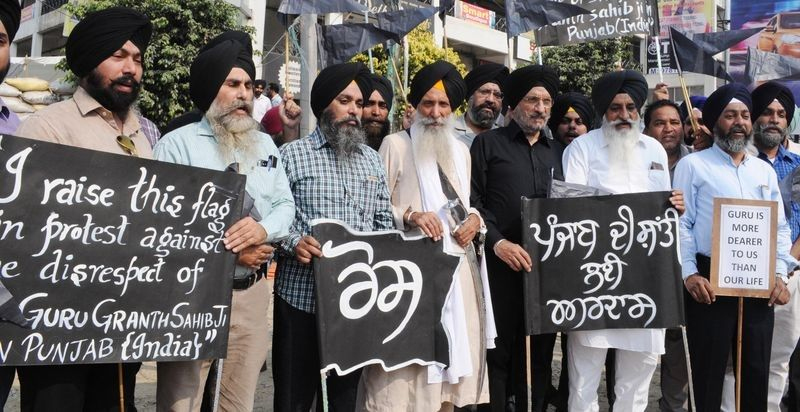 Smart
Granth Sahib Ji
Punjab (India)
"I raise this flag
in protest against
he disrespect of
GURU GRANTH SAHIB JI
N PUNJAB {India}"
ਰੋਸ
ਪੰਜਾਬ ਦੀ ਸ਼ਾਂਤੀ
ਲਈ
ਅਰਦਾਸ
GURU IS
MORE
DEARER
TO US
THAN
OUR LIFE